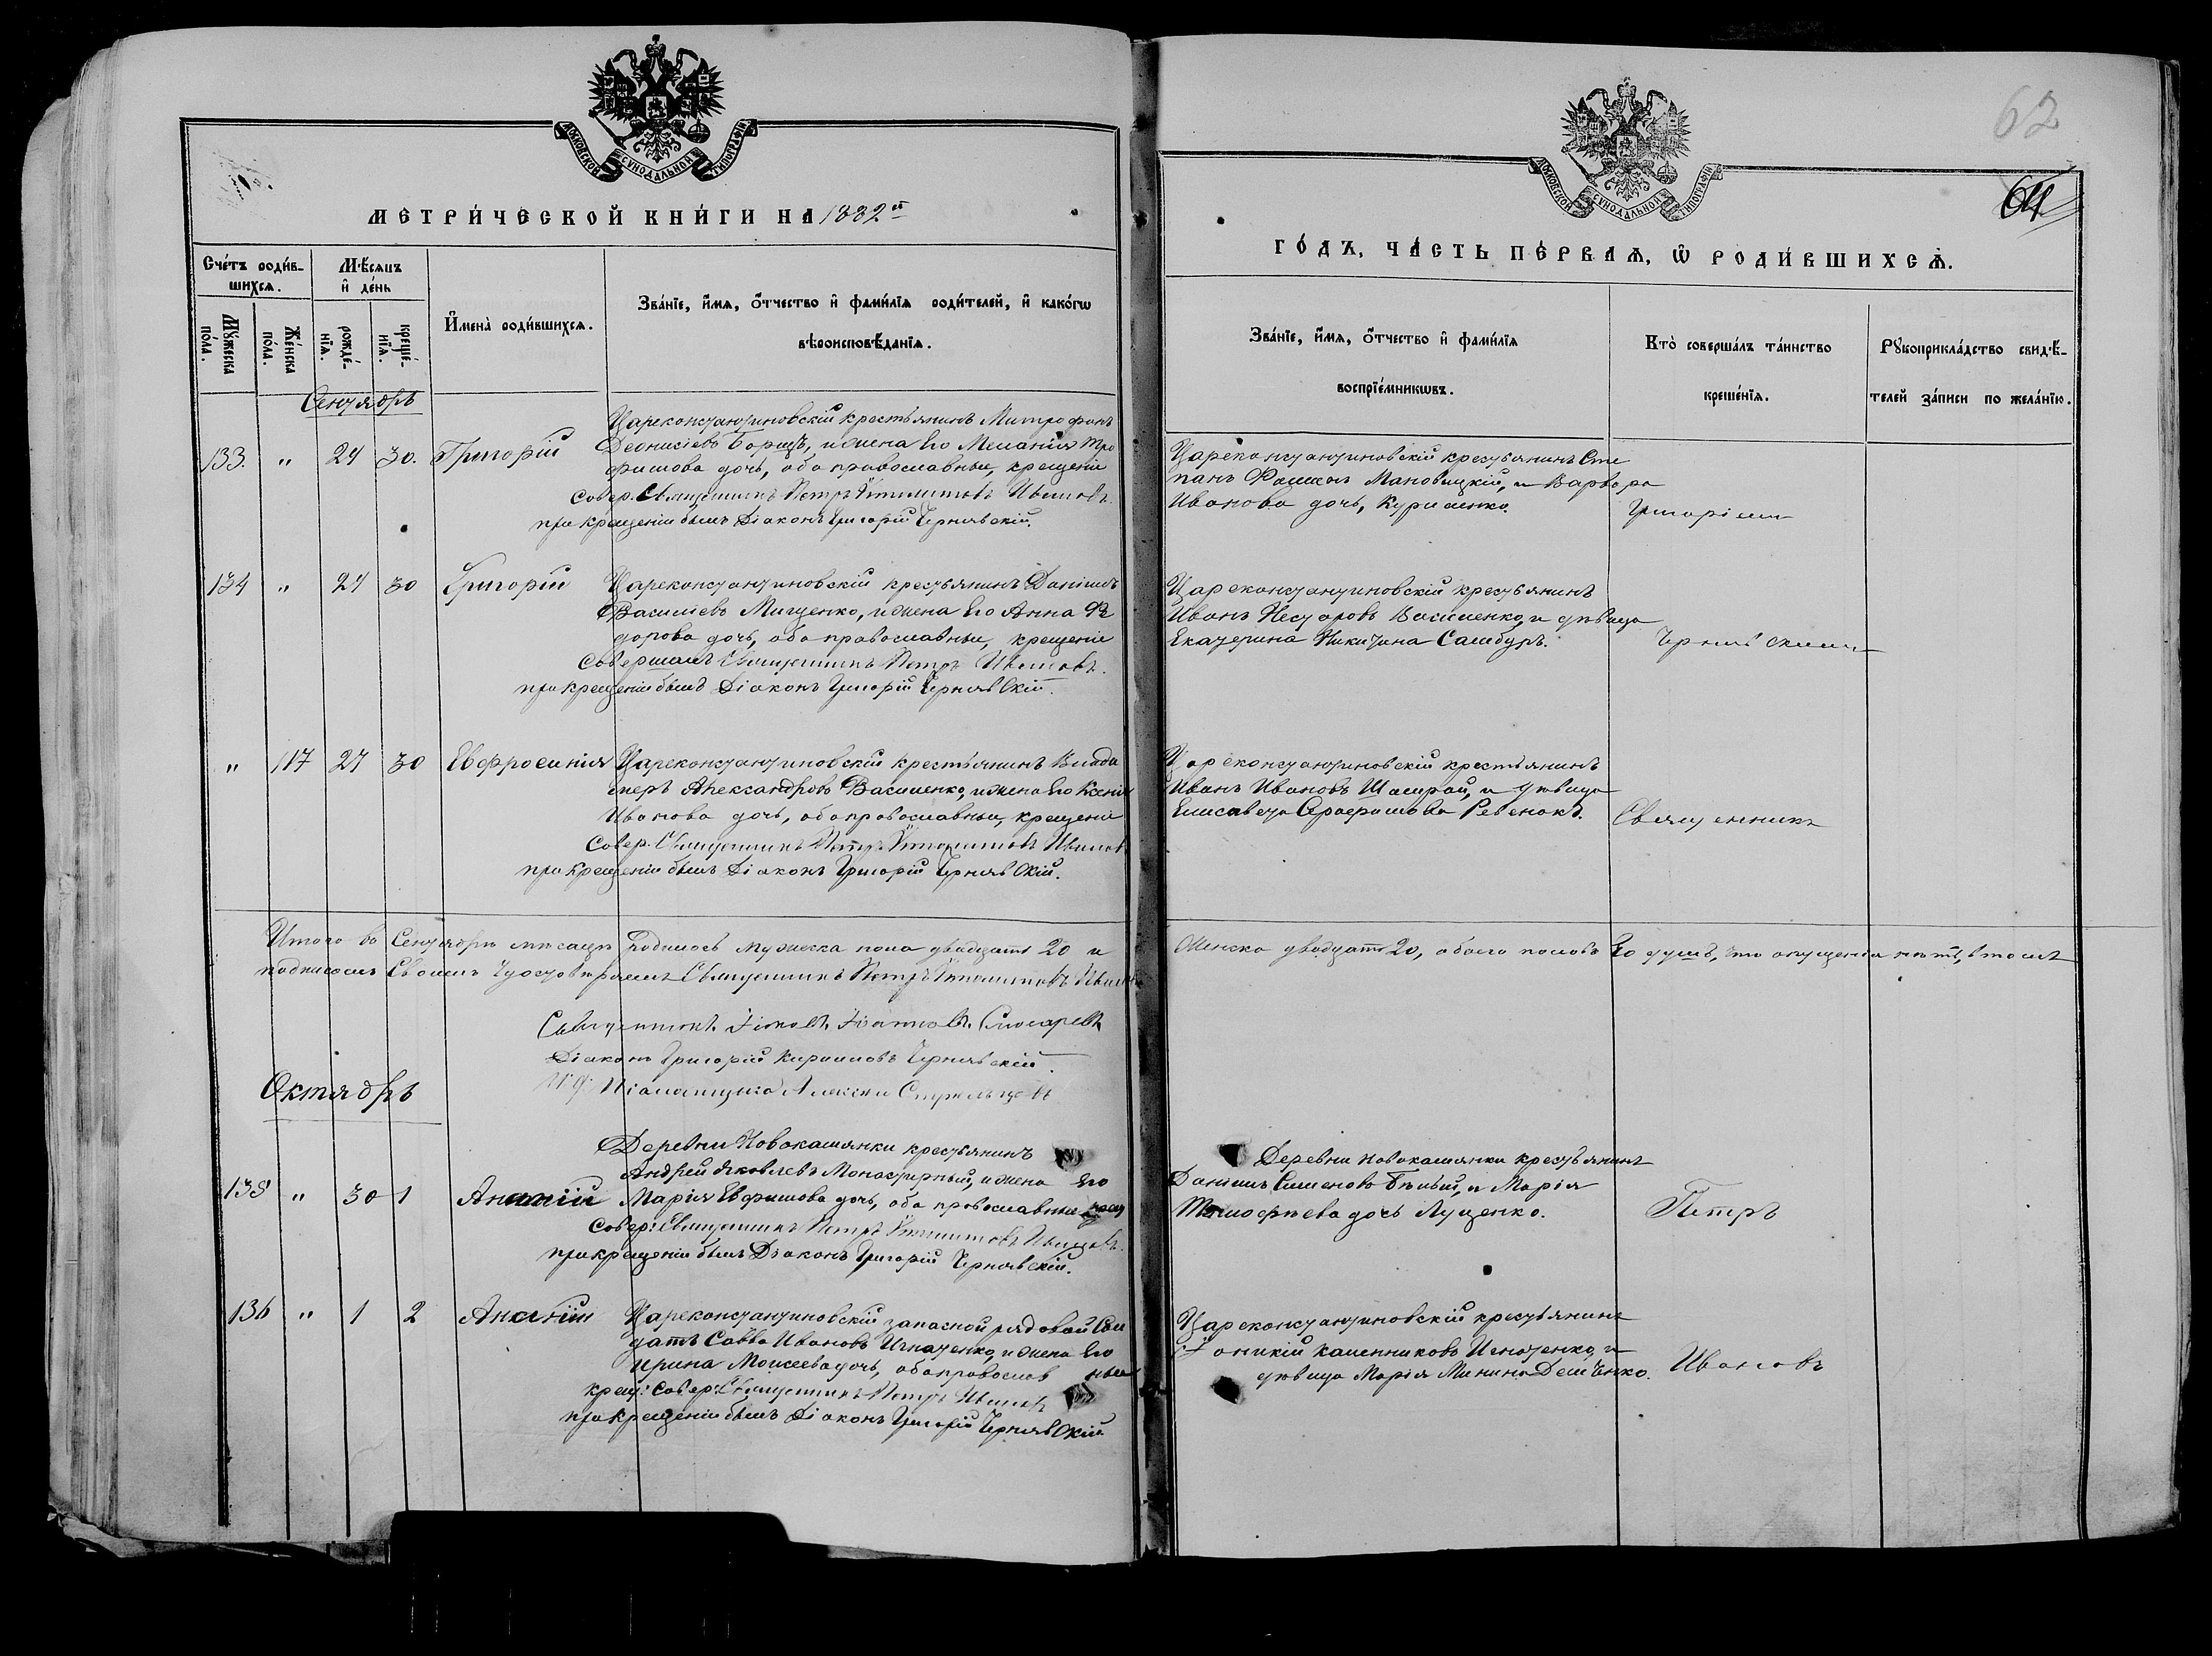 МОСКОВСКОЙ СУНОДАЛЬНОЙ ТИПОГРАФІИ
МЕТРИ́ЧЕСКОЙ КНИ́ГИ НА 1882 й
Сче́тъ роди́в-
шихсѧ.
Мѣ́сѧцъ
и҆ де́нь
И҆мена̀ роди́вшихсѧ.
Зва́нїе, и҆́мѧ, ѻ҆́тчество и҆ фами́лїѧ роди́телей, и҆ како́гѡ
вѣроисповѣ́данїѧ.
Мꙋ́жеска
по́ла.
Же́нска
по́ла.
рожде́-
нїѧ.
креще́-
нїѧ.
Сентябрь
133. " 24 30. Григорій
Цареконстантиновскій крестьянинъ Митрофанъ
Деонисіевъ Борщъ, и жена его Меланія Тро
фимова дочь, оба православные, крещеніе
совер. Священникъ Петръ Ивановъ
при крещеніи былъ Діаконъ Григорій Чернявскій.
134 " 24 30 Григорій
Цареконстантиновскій крестьянинъ Даніилъ
Василіевъ Мищенко, и жена его Анна Ѳе
дорова дочь, оба православные, крещеніе
совершалъ Священникъ Петръ Ивановъ.
при крещеніи былъ Діаконъ Григорій Чернявскій.
" 117 27 30 Евфросинія
Цареконстантиновскій крестьянинъ Влади
миръ Александровъ Василенко, и жена его Ксенія
Иванова дочь, оба православные, крещеніе
совер. Священникъ Петръ Ивановъ
при крещеніи былъ Діаконъ Григорій Чернявскій.
Итого въ Сентябрѣ мѣсяцѣ родилось мужска пола двадцать 20 и
подписомъ своимъ удостовѣряемъ Священникъ Петръ Ивановъ
Священникъ Іаковъ Іоанновъ Слюсаревъ
Діаконъ Григорій Кириловъ Чернявскій.
И. д. Псаломщика Алексій Стрельцовъ
Октябрь
135 " 30 1 Ананій
Деревни Новокаменки крестьянинъ
Андрей Яковлевъ Монастырный, и жена его
Марія Евфимова дочь, оба православные, крещ
совер: Священникъ Петръ Ивановъ.
при крещеніи былъ Діаконъ Григорій Чернявскій.
136 " 1 2 Ананій
Цареконстантиновскій запасной рядовой сол
датъ Савва Ивановъ Игнатенко, и жена его
Ирина Моисеева дочь, оба православные
крещ: совер: Священникъ Петръ Ивановъ
при крещеніи былъ Діаконъ Григорій Чернявскій
62
64
МОСКОВСКОЙ СУНОДАЛЬНОЙ ТИПОГРАФІИ
ГО́ДЪ, ЧА́СТЬ ПЕ́РВАѦ, Ѡ҆ РОДИ́ВШИХСѦ.
Зва́нїе, и҆́мѧ, ѻ҆́тчество и҆ фами́лїѧ
воспрїе́мникѡвъ.
Кто̀ соверша́лъ та́инство
креще́нїѧ.
Рꙋкоприкла́дство свидѣ́-
телей за́писи по жела́нїю.
Цареконстантиновскій крестьянинъ Сте
панъ Мановицкій, и Варвара
Иванова дочь, Куриленко.
Григоріемъ
Цареконстантиновскій крестьянинъ
Иванъ Несторовъ Василенко, и дѣвица
Екатерина Никитина Самбуръ.
Чернявскимъ
Цареконстантиновскій крестьянинъ
Иванъ Ивановъ Шамрай, и дѣвица
Елисавета Серафимова Ревенокъ.
Священникъ
Женска двадцать 20, обоего половъ 40 душъ, что опущенія нѣтъ, въ томъ
Деревни Новокаменки крестьянинъ
Даніилъ Симеоновъ Бѣлый, и Марія
Тимофѣева дочь Луценко.
Петръ
Цареконстантиновскій крестьянинъ
Іоаникій Каленниковъ Игнатенко, и
дѣвица Марія Минина Демченко.
Ивановъ